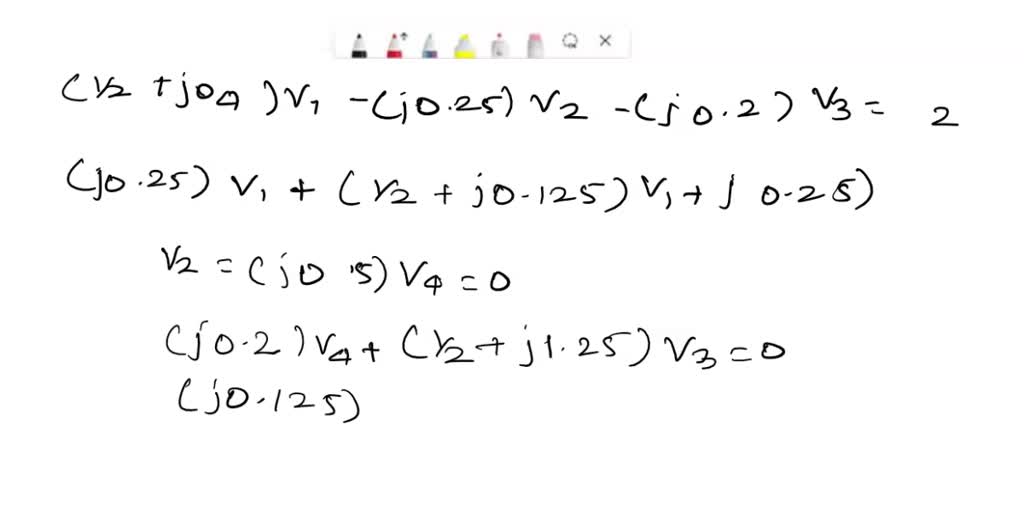 (1/2 + j0.4)V1 - (j0.25) V2 - (j0.2) V3 = 2
(j0.25) V1 + (1/2 + j0.125) V1 + j 0.25)
V2 = (j0.5) V4 = 0
(j0.2) V4 + (1/2 + j1.25) V3 = 0
(j0.125)